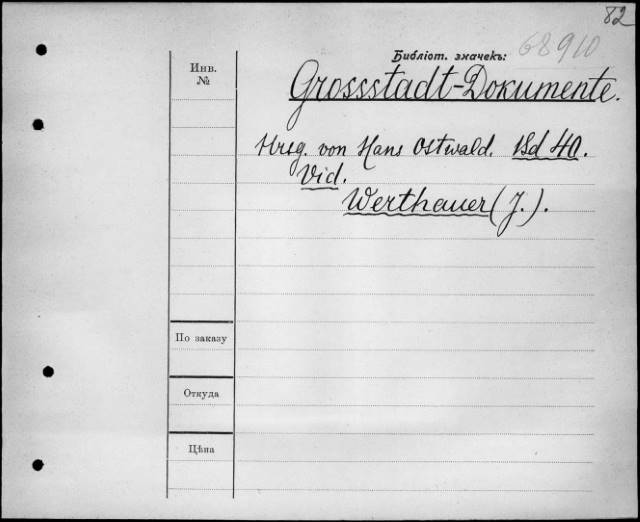 82
68910
Библіот. значекъ:
Инв.
№
Grossstadt-Dokumente.
Hrsg. von Hans Ostwald. Bd 40.
Vid.
Werthauer (J.).
По заказу
Откуда
Цѣна